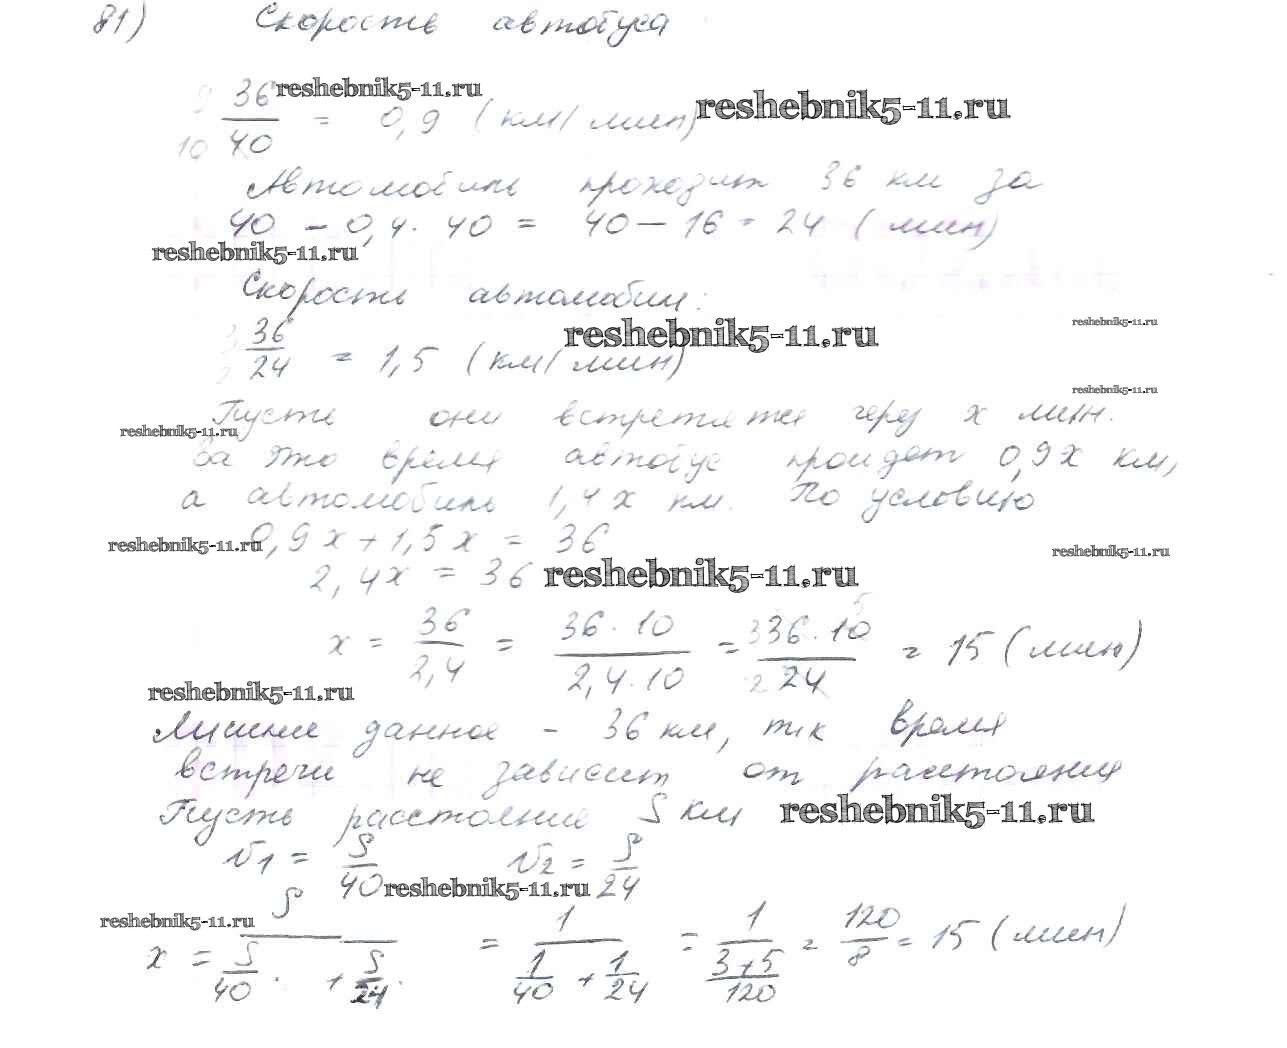 81) Скорость автобуса
reshebnik5-11.ru
36/40 = 0,9 (км/мин) reshebnik5-11.ru
9 10
Автомобиль проходит 36 км за
40 - 0,4 · 40 = 40 - 16 = 24 (мин)
reshebnik5-11.ru
Скорость автомобил:
reshebnik5-11.ru reshebnik5-11.ru
36/24 = 1,5 (км/мин)
3 2
reshebnik5-11.ru
Пусть они встретятся через x мин.
reshebnik5-11.ru
За это время автобус пройдет 0,9x км,
а автомобиль 1,4x км. По условию
reshebnik5-11.ru 0,9x + 1,5x = 36 reshebnik5-11.ru
2,4x = 36 reshebnik5-11.ru
x = 36/2,4 = 36·10/2,4·10 = 36·10/24 = 15 (мин)
3 5 2
reshebnik5-11.ru
Лишние данное - 36 км, тк время
встречи не зависит от расстояния
Пусть расстояние S км reshebnik5-11.ru
v1 = S/40 v2 = S/24
reshebnik5-11.ru
reshebnik5-11.ru
x = S/(S/40 + S/24) = 1/(1/40 + 1/24) = 1/((3+5)/120) = 120/8 = 15 (мин)